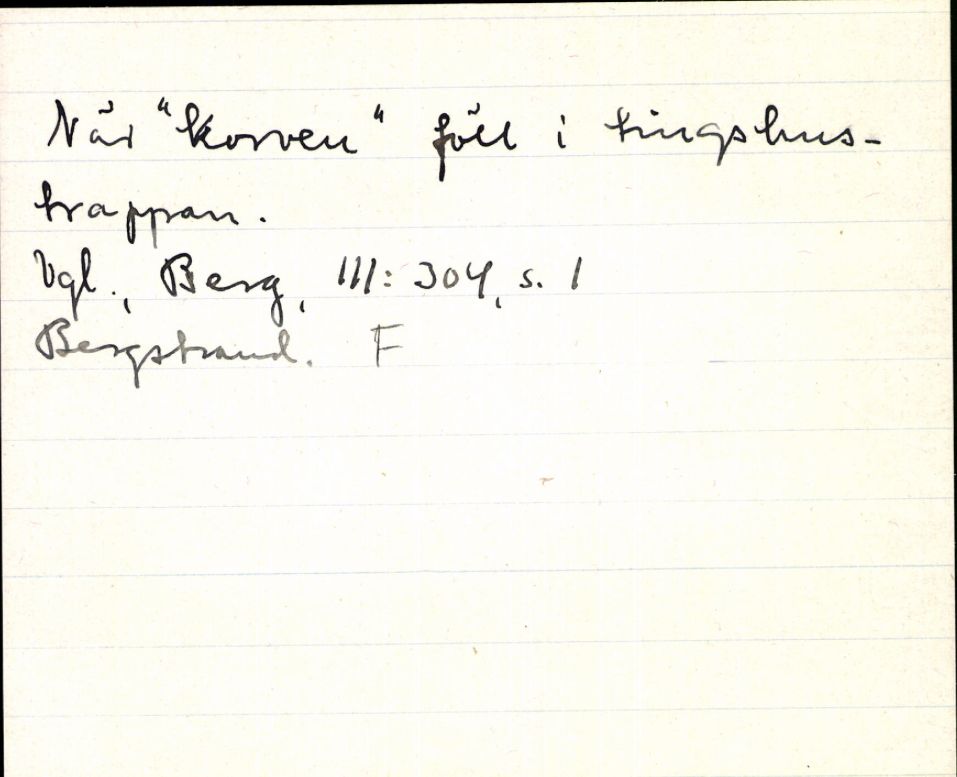 När "korven" föll i tingshus-
trappan.
Vgl., Berg, III: 304, s. 1
Bergstrand. F